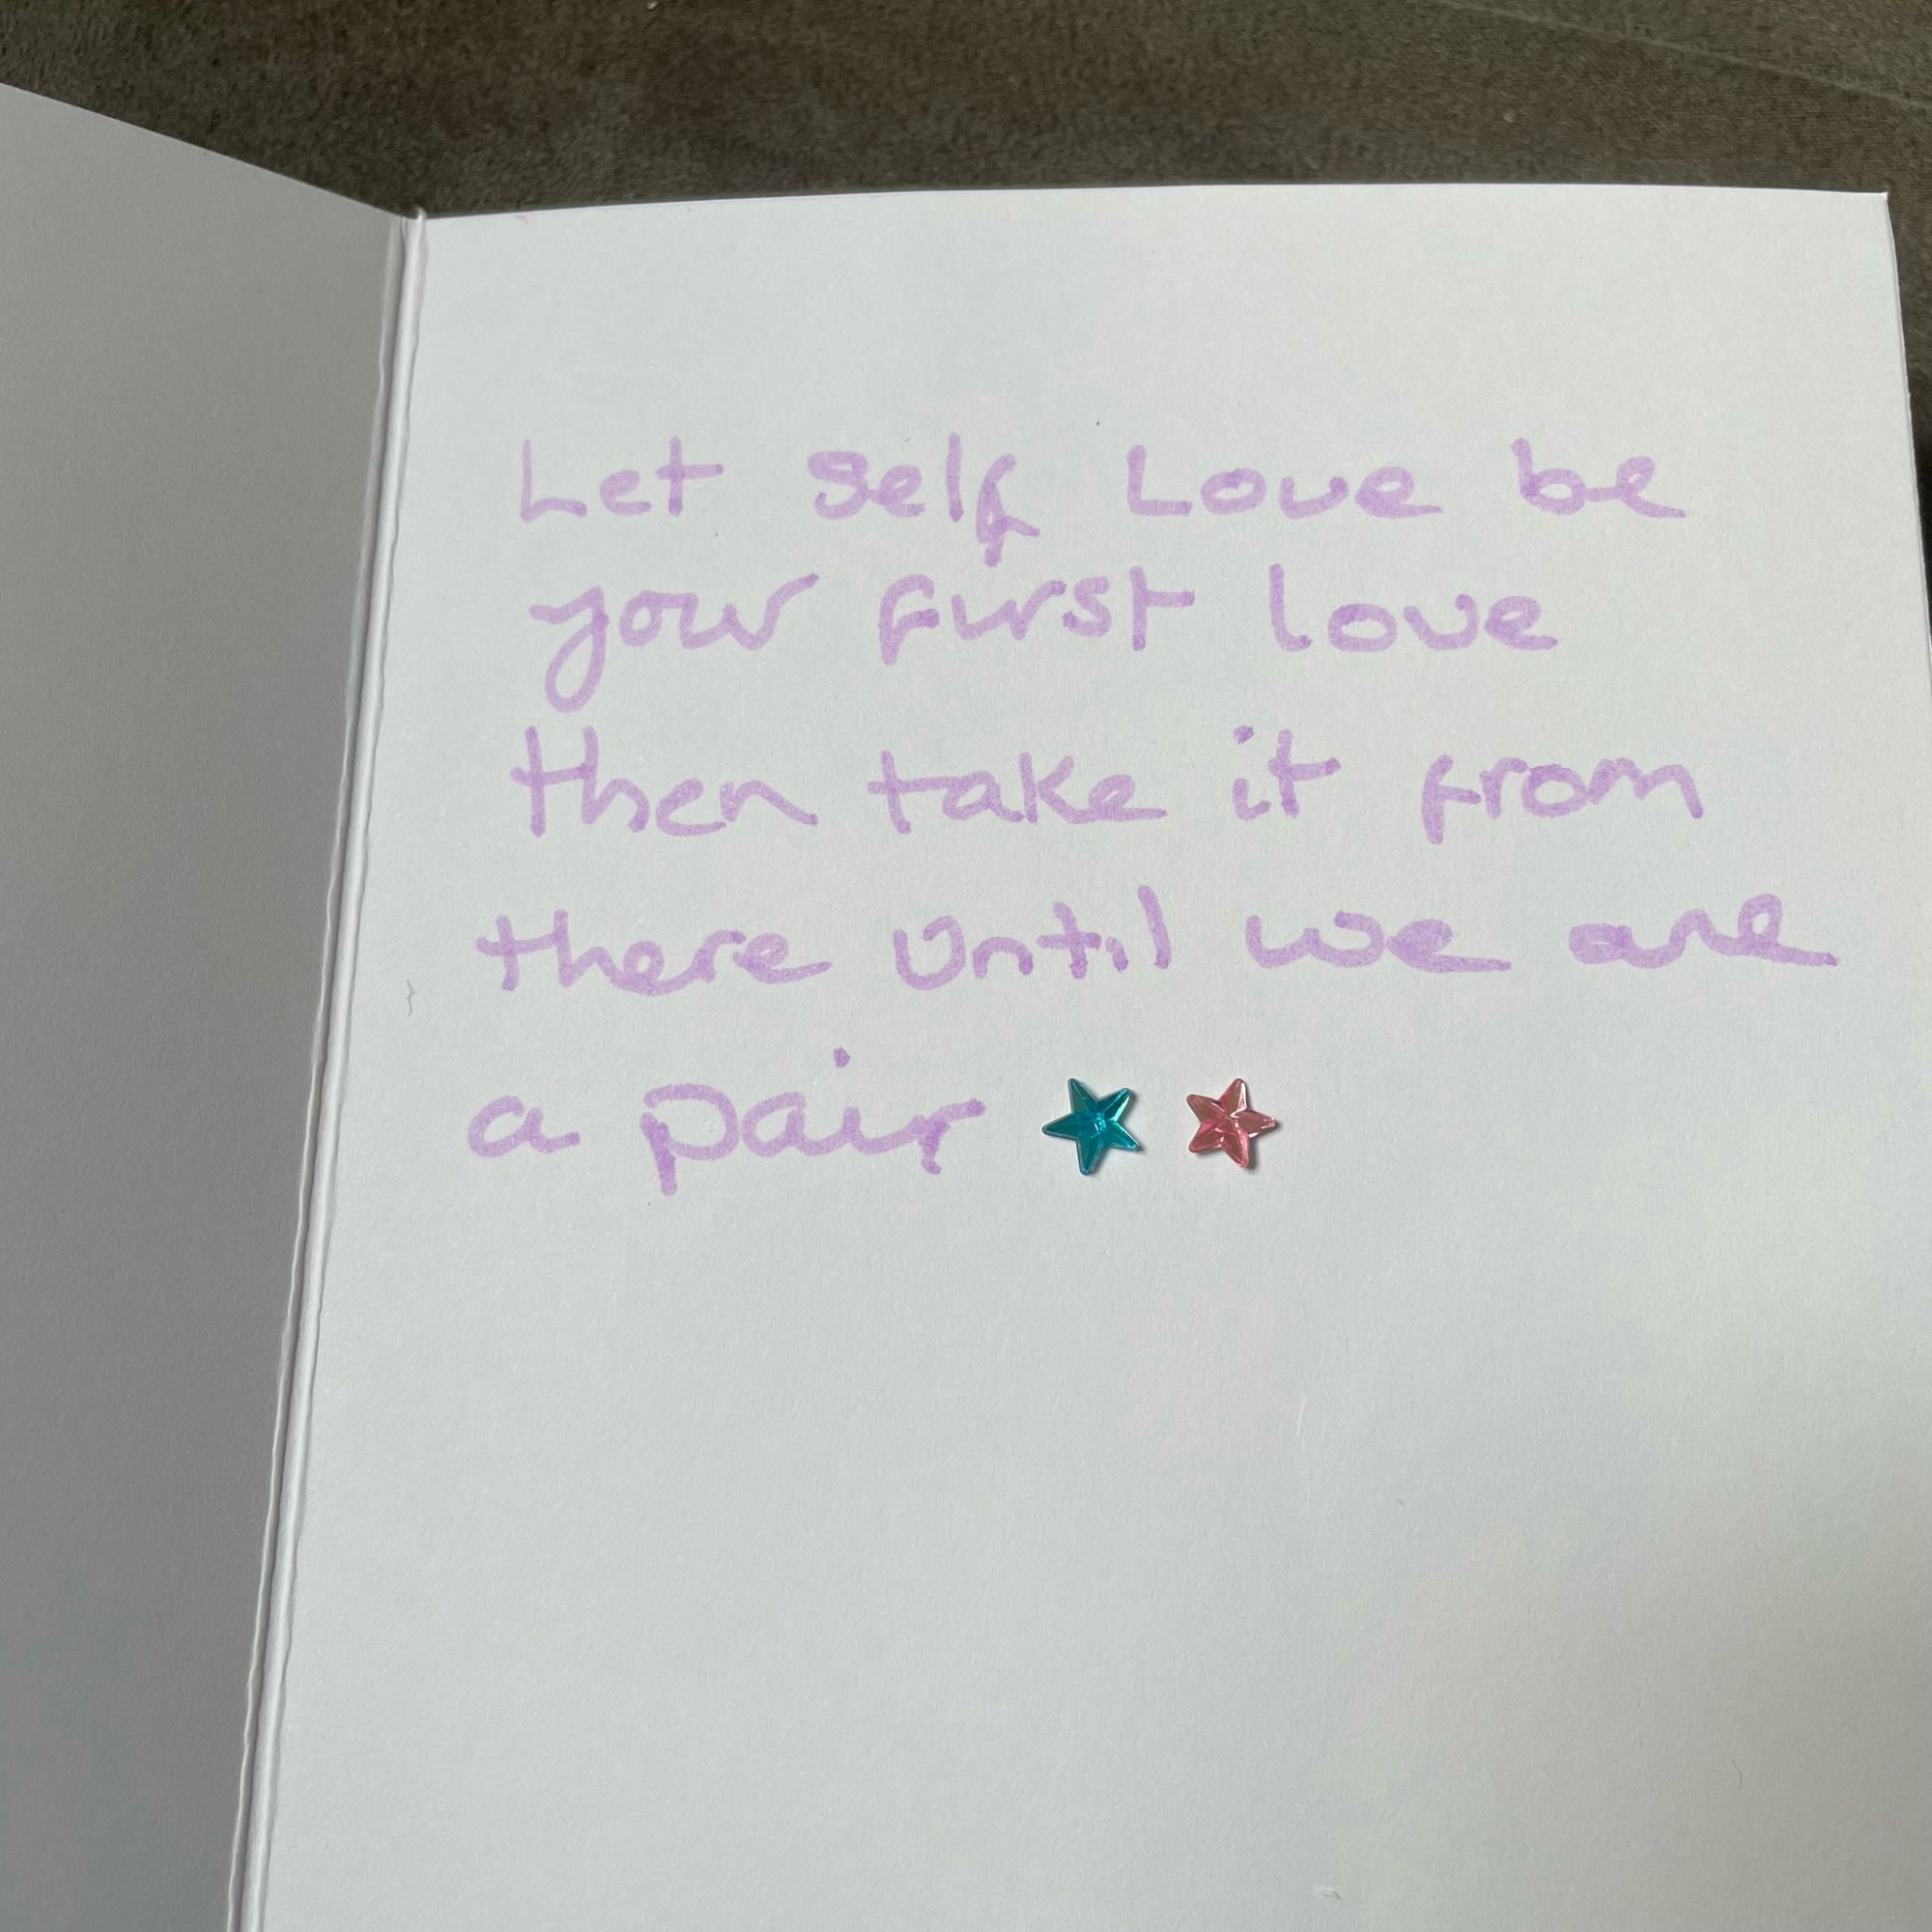 Let self Love be
your first love
then take it from
there Until we are
a pair